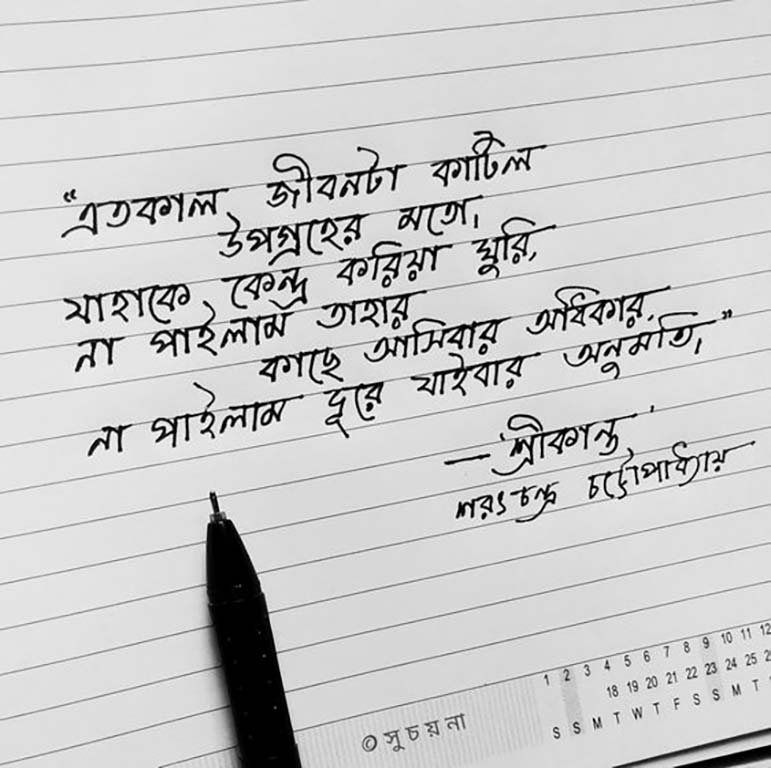 “এতকাল জীবনটা কাটিল
উপগ্রহের মতো।
যাহাকে কেন্দ্র করিয়া ঘুরি,
না পাইলাম তাহার
কাছে আসিবার অধিকার,
না পাইলাম দূরে যাইবার অনুমতি।”
— 'শ্রীকান্ত'
শরৎচন্দ্র চট্টোপাধ্যায়
1 2 3 4 5 6 7 8 9 10 11 12
18 19 20 21 22 23 24 25
S S M T W T F S S M T
© সুচয়না